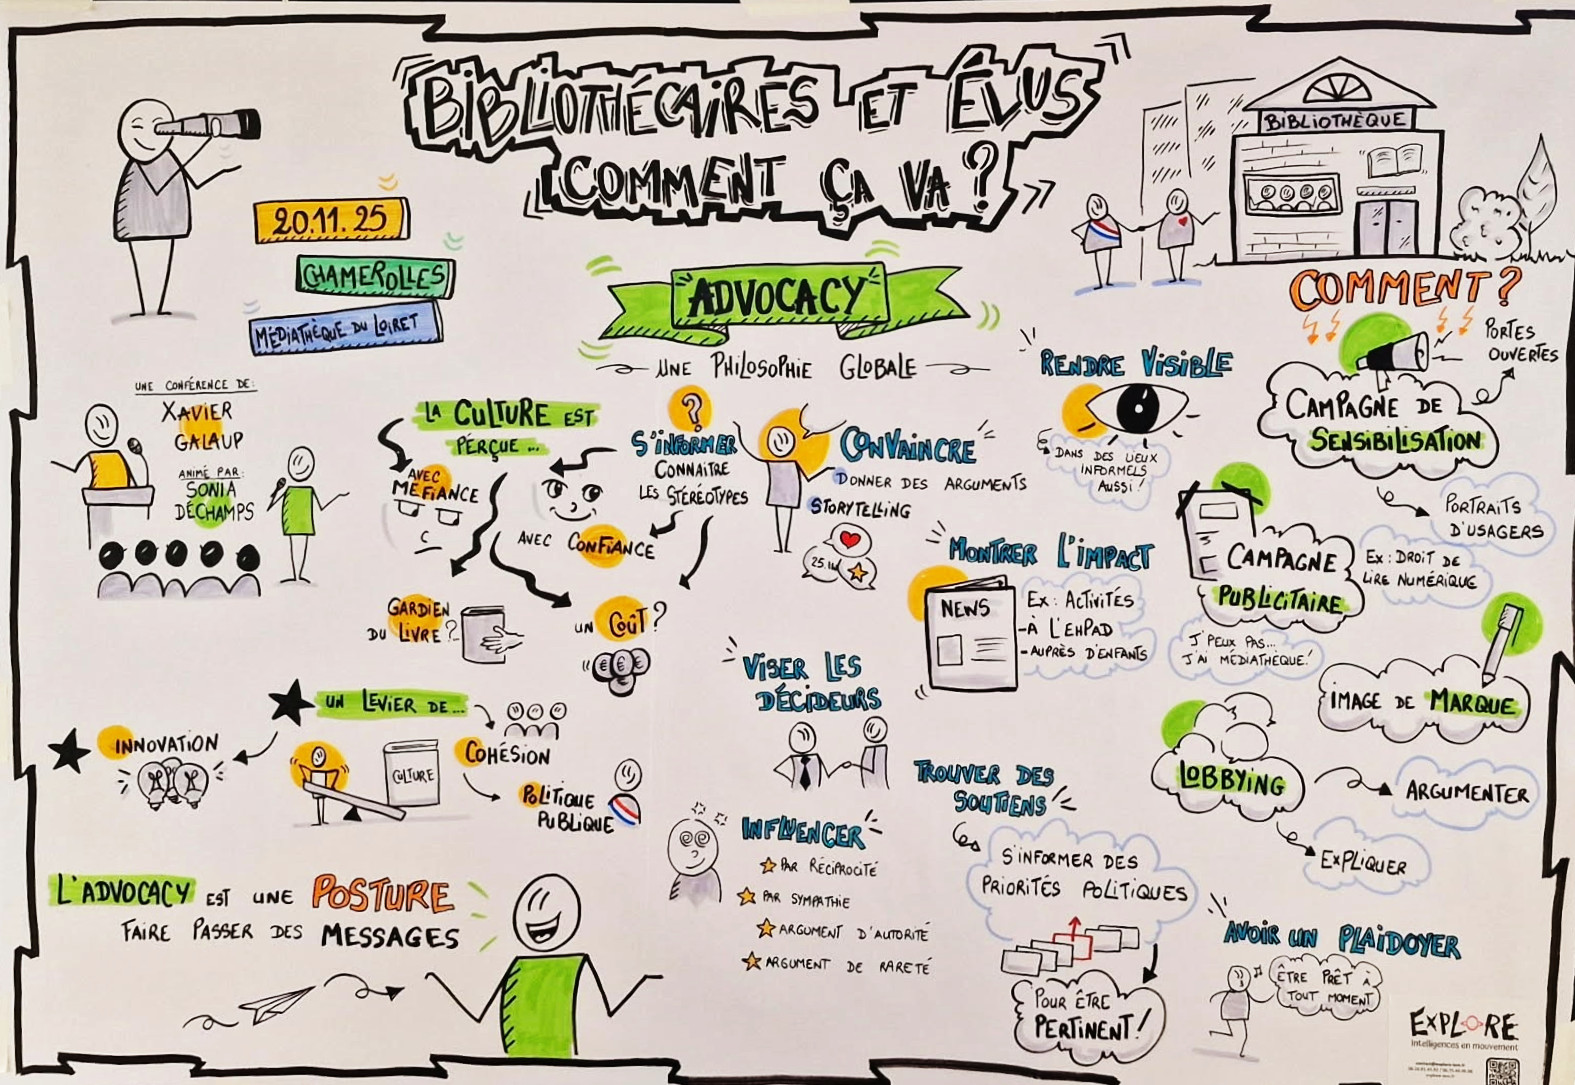 BIBLIOTHÉCAIRES ET ÉLUS
COMMENT ÇA VA ?
BIBLIOTHÈQUE
20.11.25
CHAMEROLLES
MÉDIATHÈQUE DU LOIRET
UNE CONFÉRENCE DE:
XAVIER
GALAUP
ANIMÉ PAR:
SONIA
DÉCHAMPS
"ADVOCACY"
UNE PHILOSOPHIE GLOBALE
LA CULTURE EST
PERÇUE ...
AVEC
MÉFIANCE
AVEC CONFIANCE
GARDIEN
DU LIVRE ?
UN COÛT ?
€ € €
?
S'INFORMER
CONNAITRE
LES STÉRÉOTYPES
CONVAINCRE
DONNER DES ARGUMENTS
STORYTELLING
RENDRE VISIBLE
DANS DES LIEUX
INFORMELS
AUSSI !
MONTRER L'IMPACT
NEWS
EX : ACTIVITÉS
-À L'EHPAD
-AUPRÈS D'ENFANTS
COMMENT ?
PORTES
OUVERTES
CAMPAGNE DE
SENSIBILISATION
PORTRAITS
D'USAGERS
CAMPAGNE
PUBLICITAIRE
EX : DROIT DE
LIRE NUMÉRIQUE
J'PEUX PAS...
J'AI MÉDIATHÈQUE!
IMAGE DE MARQUE
LOBBYING
ARGUMENTER
EXPLIQUER
UN LEVIER DE...
INNOVATION
CULTURE
COHÉSION
POLITIQUE
PUBLIQUE
VISER LES
DÉCIDEURS
INFLUENCER
PAR RÉCIPROCITÉ
PAR SYMPATHIE
ARGUMENT D'AUTORITÉ
ARGUMENT DE RARETÉ
TROUVER DES
SOUTIENS
S'INFORMER DES
PRIORITÉS POLITIQUES
POUR ÊTRE
PERTINENT !
AVOIR UN PLAIDOYER
ÊTRE PRÊT À
TOUT MOMENT
L'ADVOCACY EST UNE POSTURE
FAIRE PASSER DES MESSAGES
EXPLORE
Intelligences en mouvement